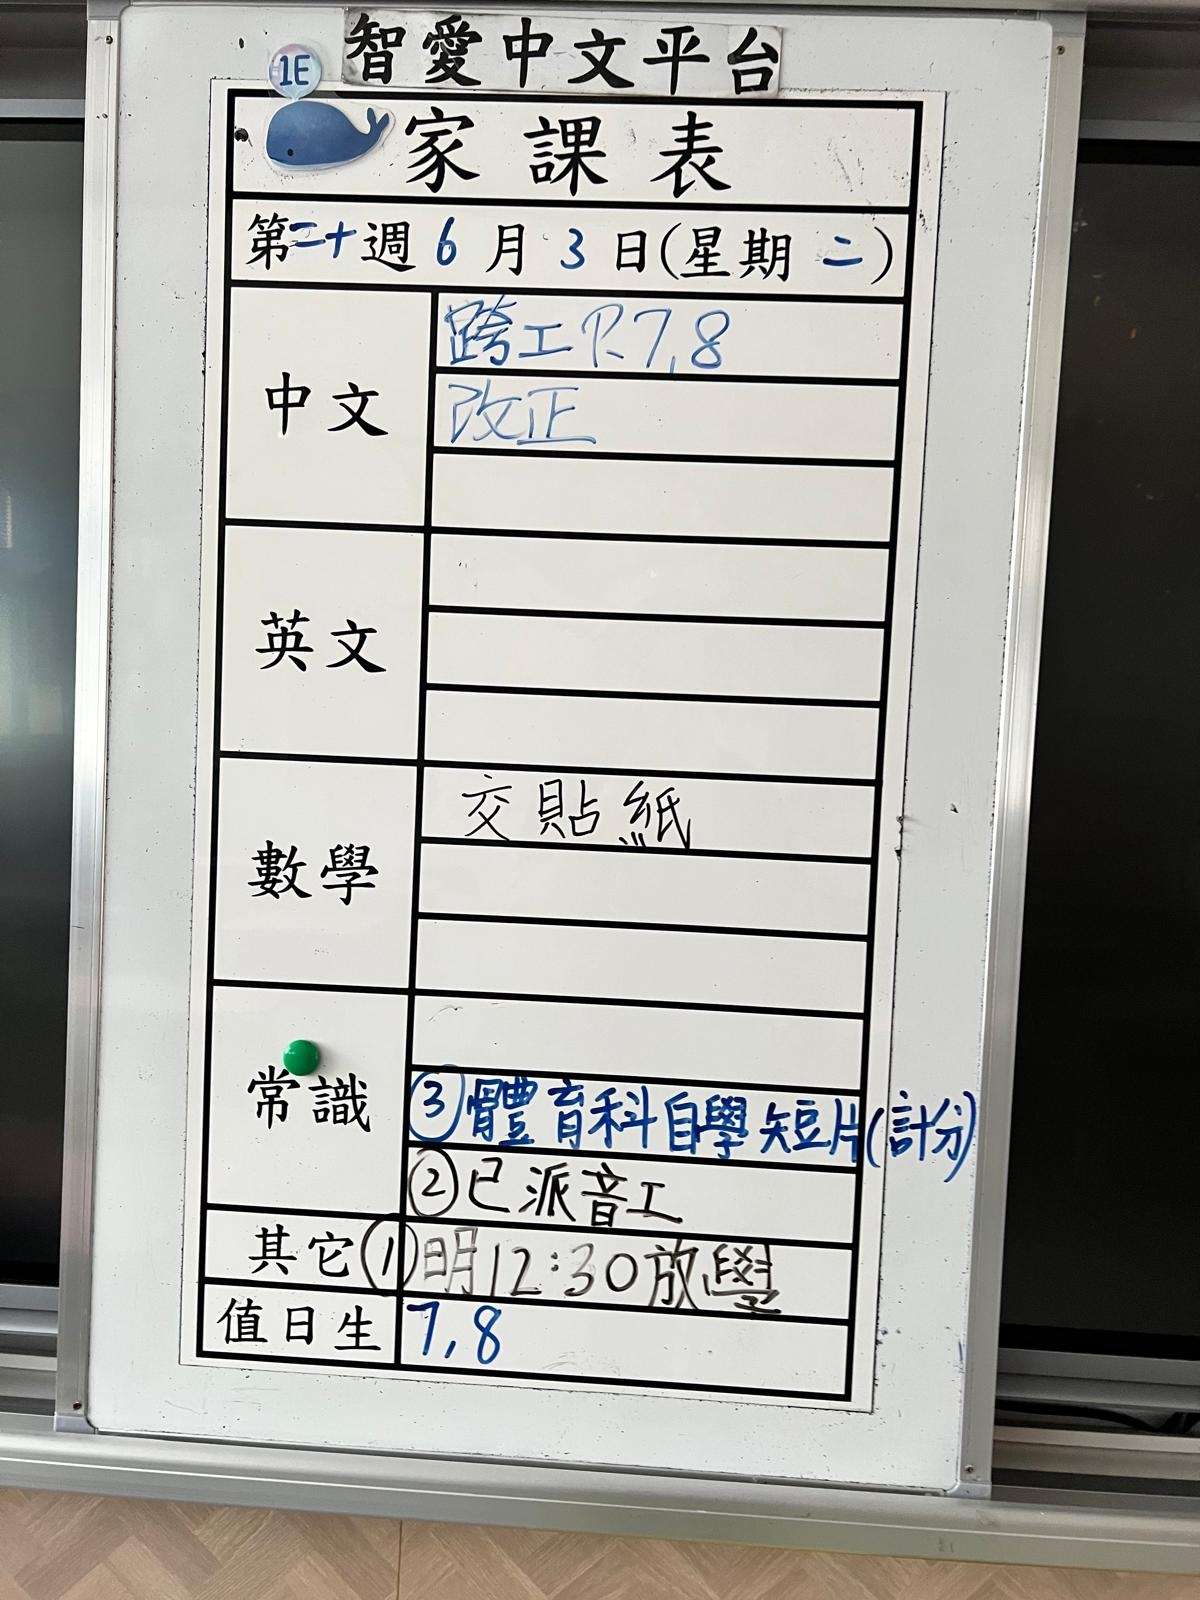 智愛中文平台
1E
家課表
第二十週 6 月 3 日(星期 二)
中文
跨工 P.7,8
改正
英文
數學
交貼紙
常識
③體育科自學短片(計分)
②已派音工
其它 ①明12:30放學
值日生 7,8